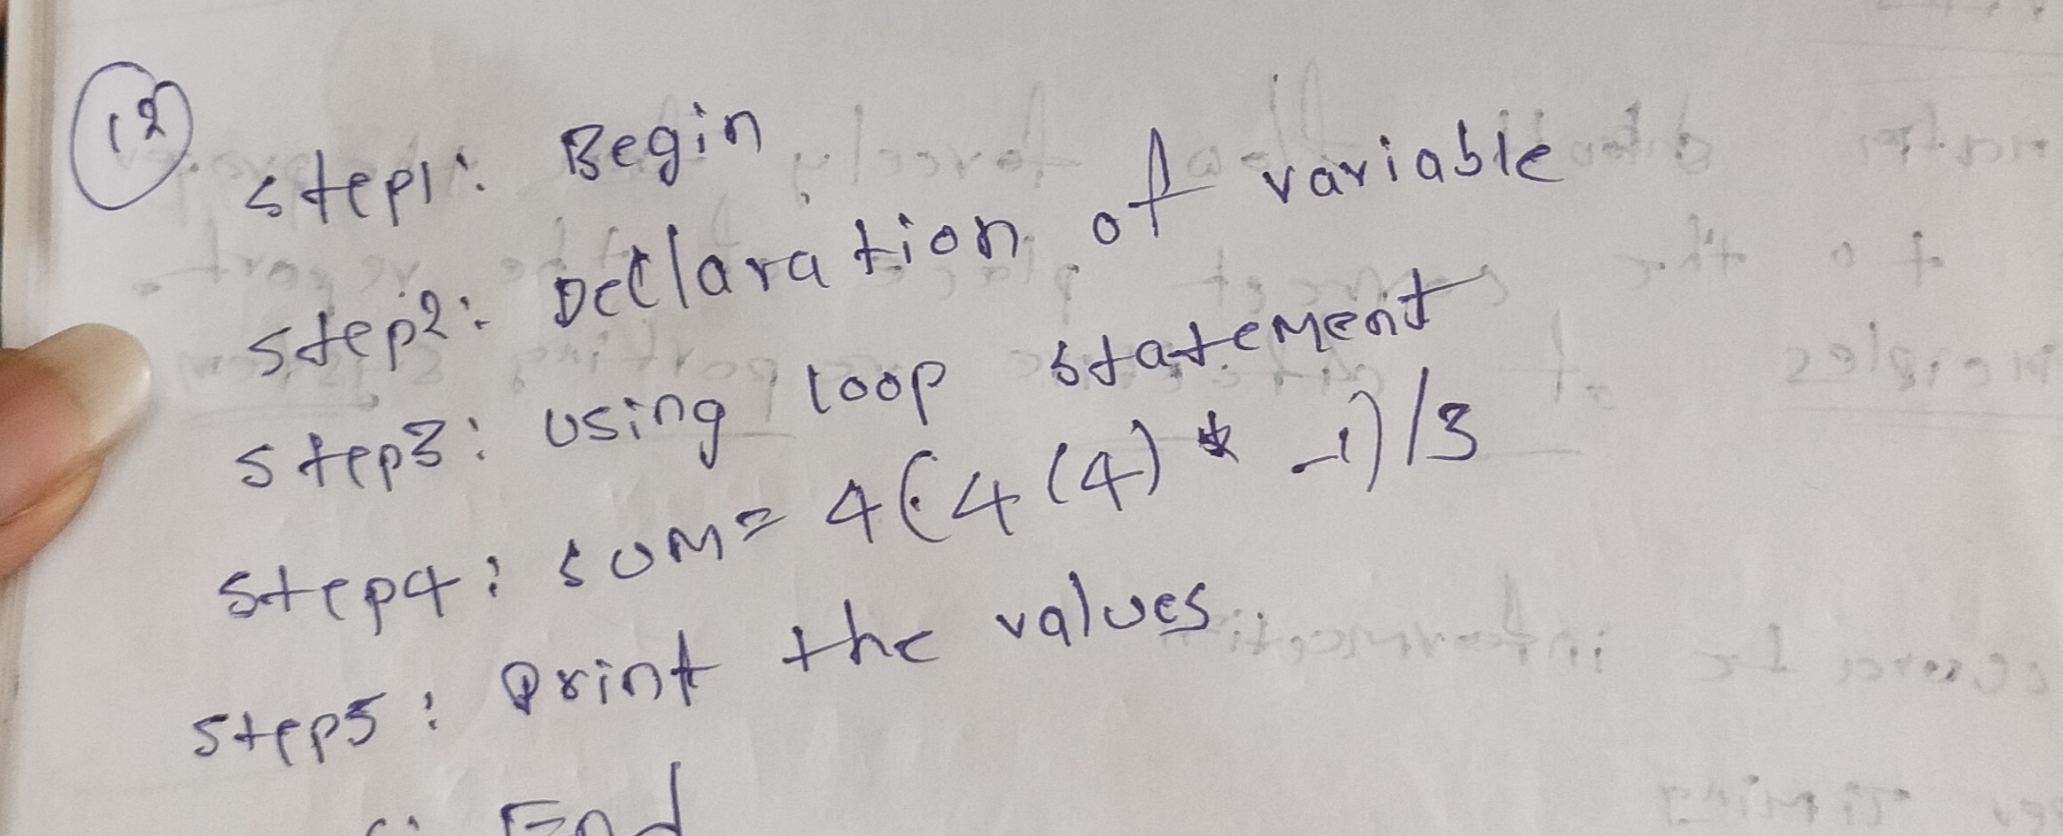 12
step1: Begin
step2: Decleration of variable
step3: using loop statement
step4: sum= 4(4(4)* -1)/3
step5: Print the values.
End